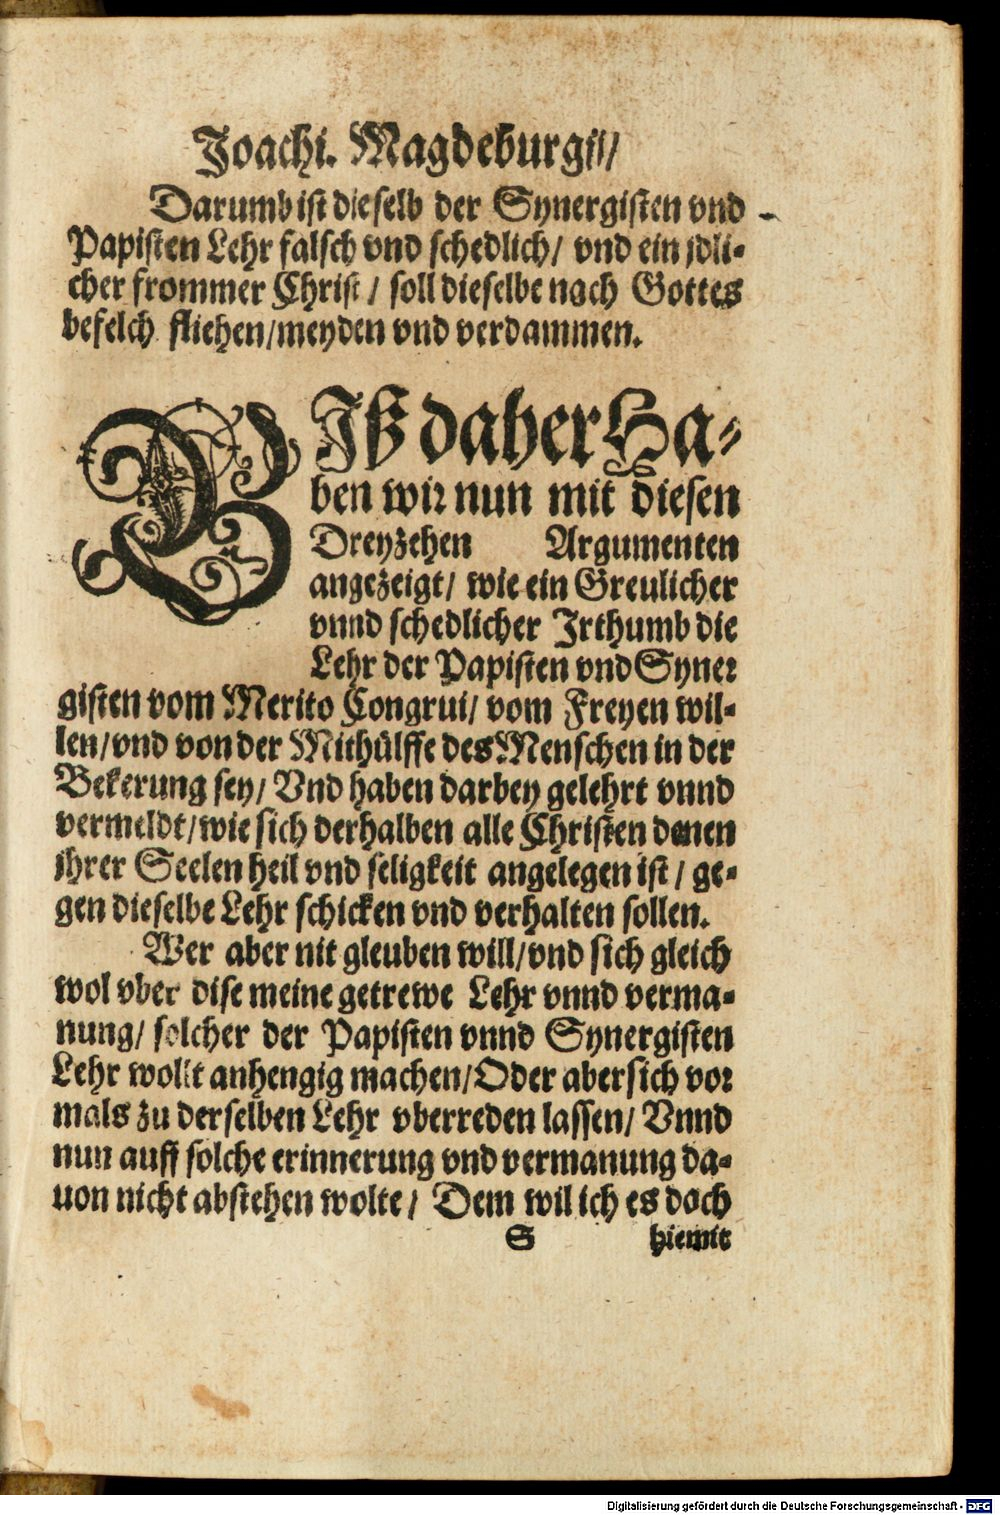 Joachi. Magdeburgij/
Darumb ist dieselb der Synergisten vnd
Papisten Lehr falsch vnd schedlich/ vnd ein jdli-
cher frommer Christ/ soll dieselbe nach Gottes
befelch fliehen/meyden vnd verdammen.
BIß daher Ha-
ben wir nun mit diesen
Dreyzehen Argumenten
angezeigt/ wie ein Greulicher
vnnd schedlicher Jrthumb die
Lehr der Papisten vnd Syner
gisten vom Merito Congrui/ vom Freyen wil-
len/vnd von der Mithülffe des Menschen in der
Bekerung sey/ Vnd haben darbey gelehrt vnnd
vermeldt/wie sich derhalben alle Christen denen
jhrer Seelen heil vnd seligkeit angelegen ist/ ge-
gen dieselbe Lehr schicken vnd verhalten sollen.
Wer aber nit gleuben will/vnd sich gleich
wol vber dise meine getrewe Lehr vnnd verma-
nung/ solcher der Papisten vnnd Synergisten
Lehr wollt anhengig machen/Oder aber sich vor
mals zu derselben Lehr vberreden lassen/ Vnnd
nun auff solche erinnerung vnd vermanung da-
uon nicht abstehen wolte/ Dem wil ich es doch
S hiemit
Digitalisierung gefördert durch die Deutsche Forschungsgemeinschaft - DFG